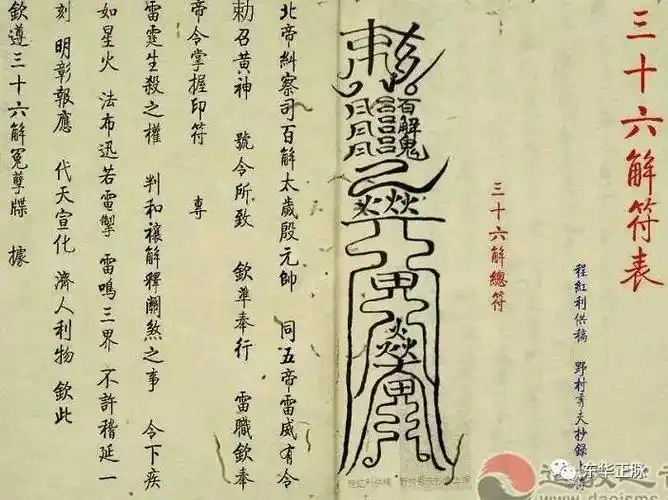 三十六解符表
程紅利供稿 野村秀夫抄錄上傳
三十六解總符
敕
百解鬼
北帝糾察司百解太歲殷元帥 同五帝雷威有令
勅召黃神 號令所致 欽準奉行 雷職欽奉
帝令掌握印符 專
雷霆生殺之權 判和禳解釋關煞之事 令下疾
如星火 法布迅若雷掣 雷鳴三界 不許稽延一
刻 明彰報應 代天宣化 濟人利物 欽此
欽遵三十六解冤孽牒 據
程紅利供稿
东华正脉